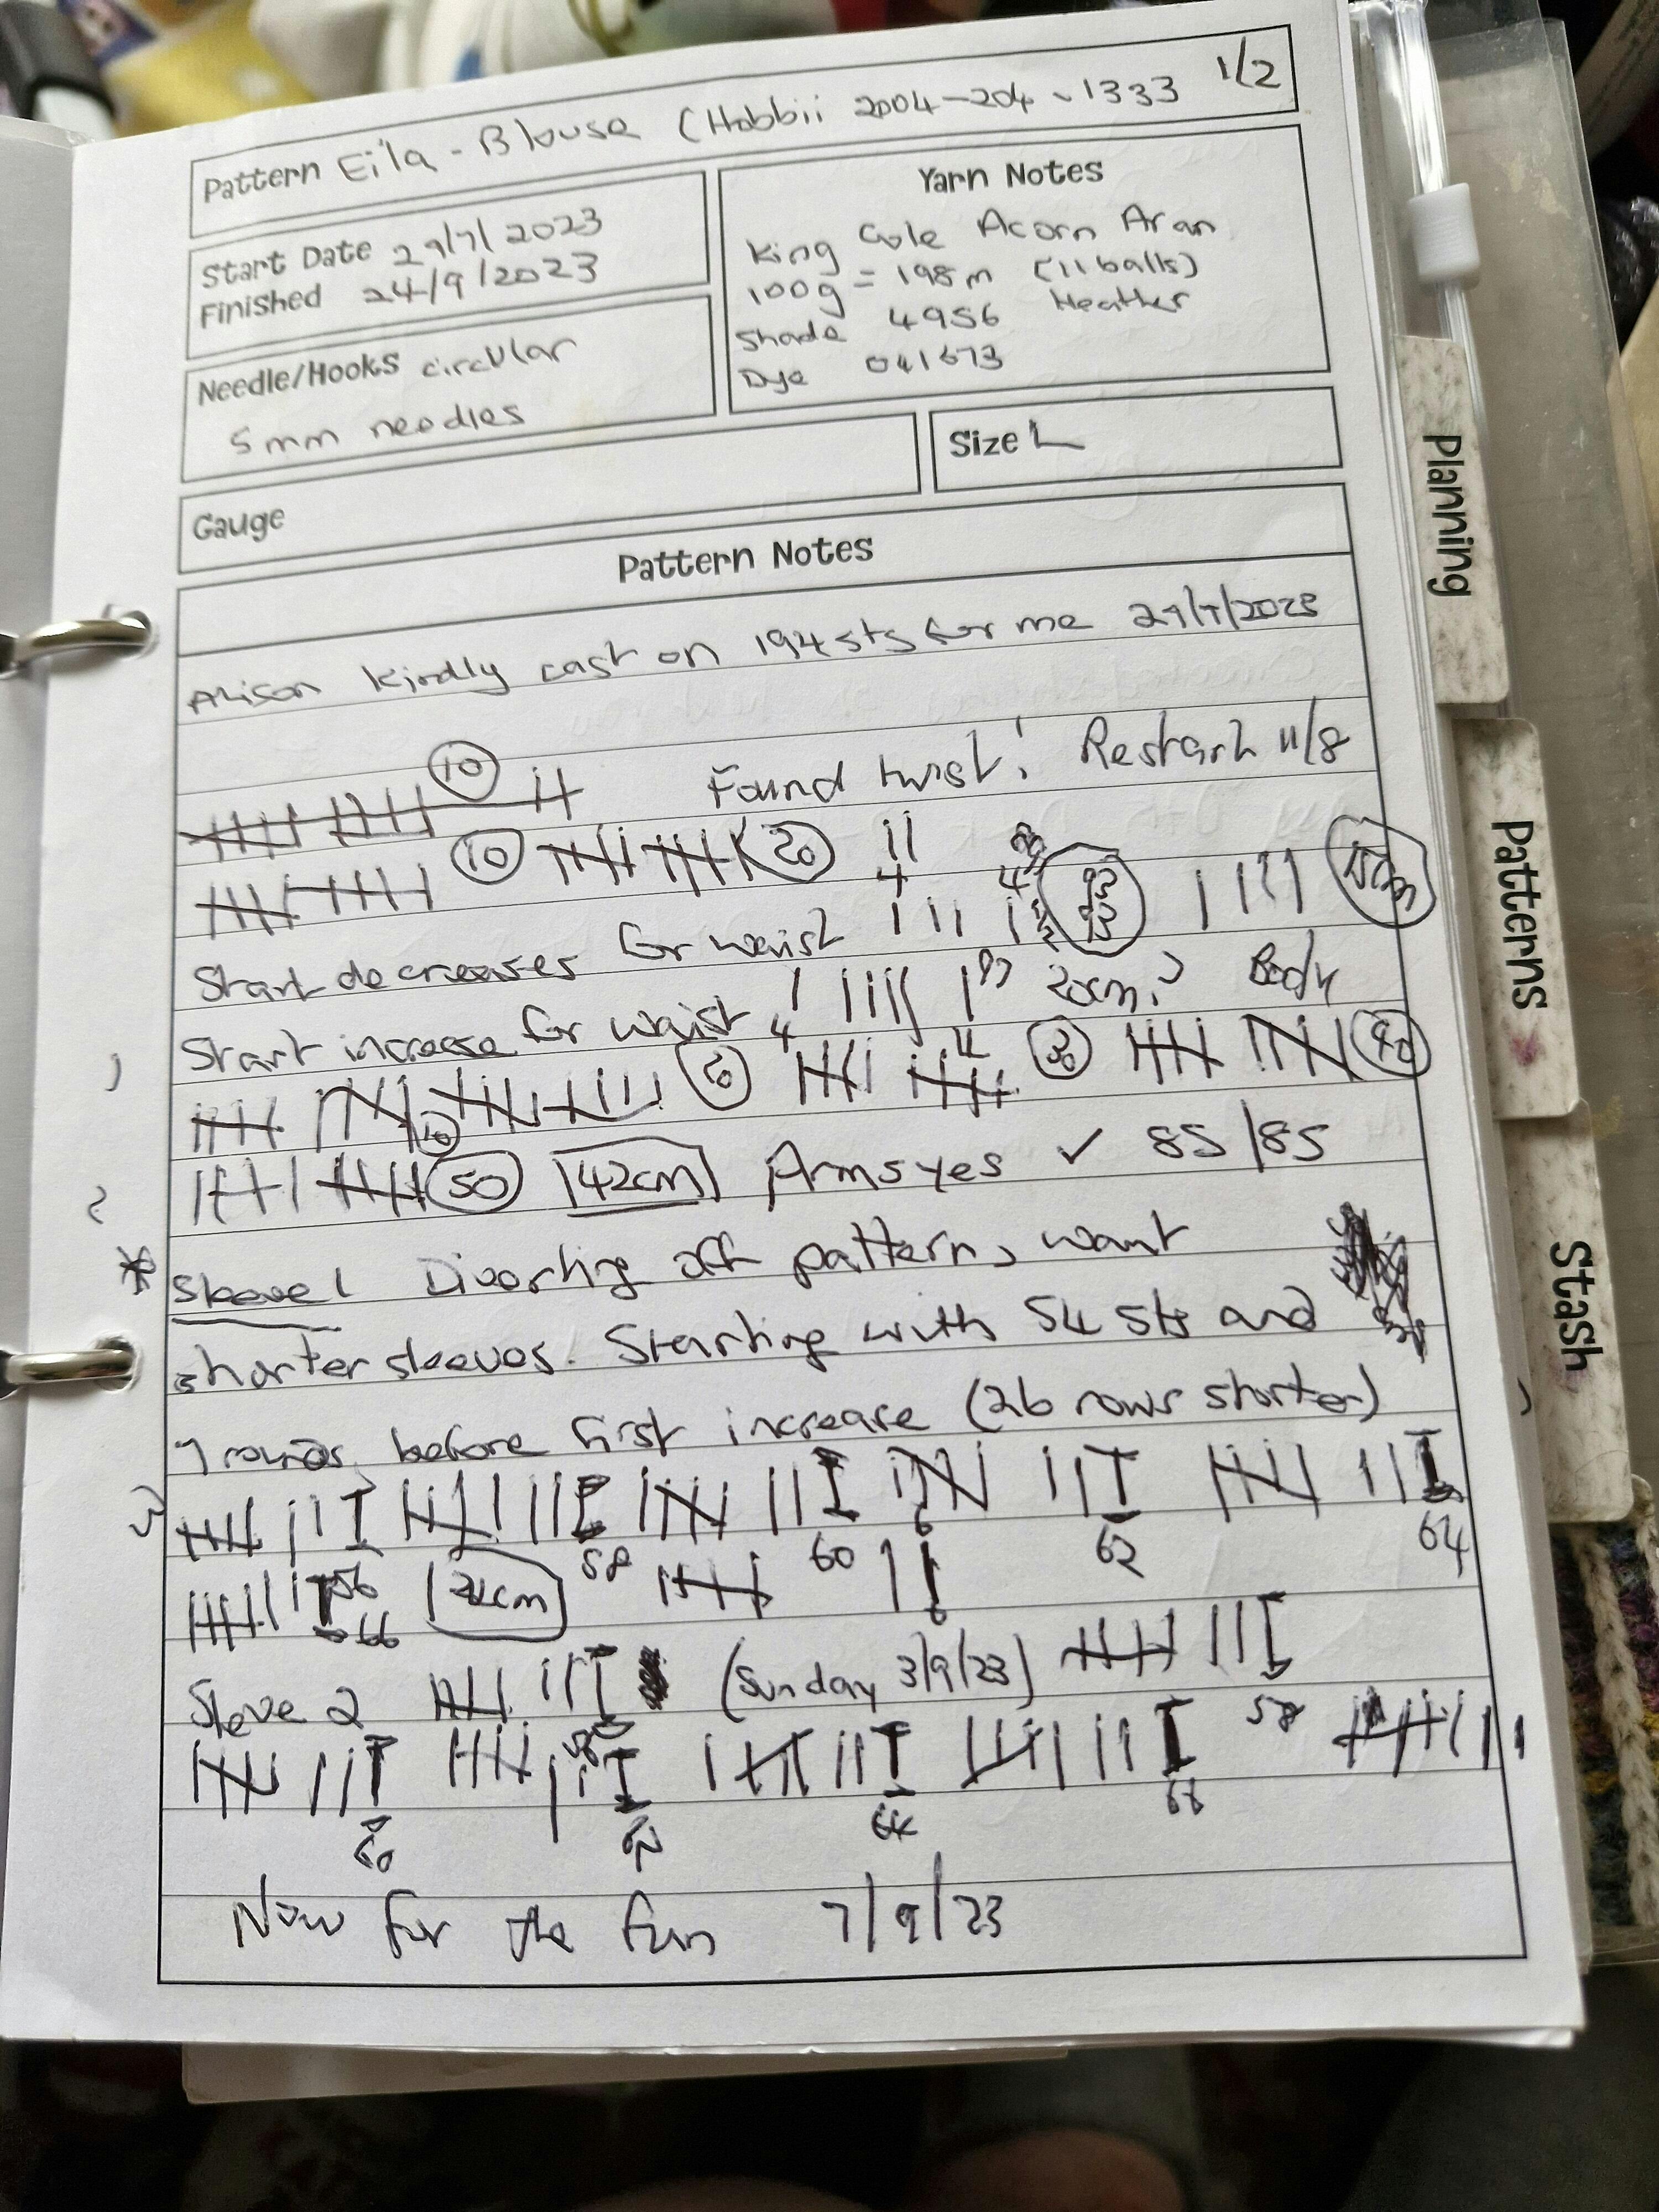 Pattern Eila - Blouse (Hobbii 2004-204-1333 1/2
Start Date 29/7/2023
Finished 24/9/2023
Needle/Hooks circular
5mm needles
Yarn Notes
King Cole Acorn Aran
100g = 198m (11 balls)
Shade 4956 Heather
Dye 041673
Gauge
Size L
Pattern Notes
Alison kindly cast on 194 sts for me 29/7/2023
10 Found twist! Restart 11/8
10 20
Start decreases for waist 93 93
Start increase for waist 20cm? Body
10 20 30 40
50 42cm Arms yes ✓ 85/85
* Sleeve 1 Diverting off pattern, want
shorter sleeves. Starting with 54 sts and
7 rounds before first increase (26 rows shorter)
56 58 60 62 64
66 21cm
Sleve 2 (Sunday 3/9/23)
58
60 64 66
Now for the fun 7/9/23
Planning
Patterns
Stash